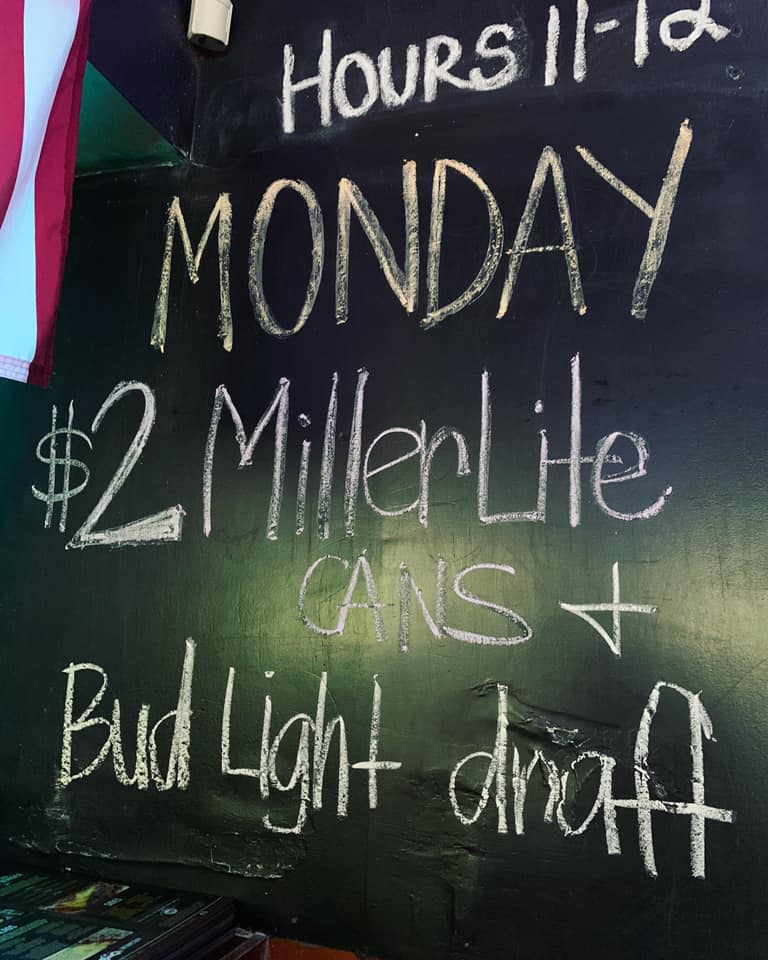 HOURS 11-12
MONDAY
$2 Miller Lite
CANS +
Bud Light draft